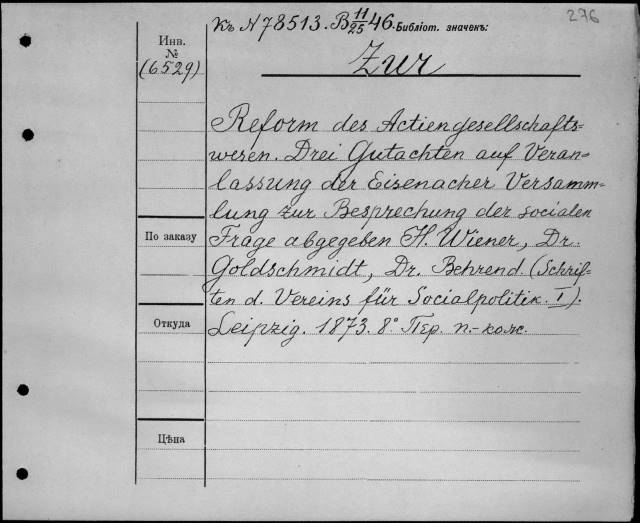 276
Къ N 78513. B 11/25 46. Библіот. значекъ:
Инв.
№
(6529)
Zur
Reform des Actiengesellschafts=
wesen. Drei Gutachten auf Veran=
lassung der Eisenacher Versamm=
lung zur Besprechung der socialen
По заказу
Frage abgegeben H. Wiener, Dr.
Goldschmidt, Dr. Behrend. (Schrif=
ten d. Vereins für Socialpolitik. I).
Откуда
Leipzig. 1873. 8° Пер. п.-кож.
Цѣна